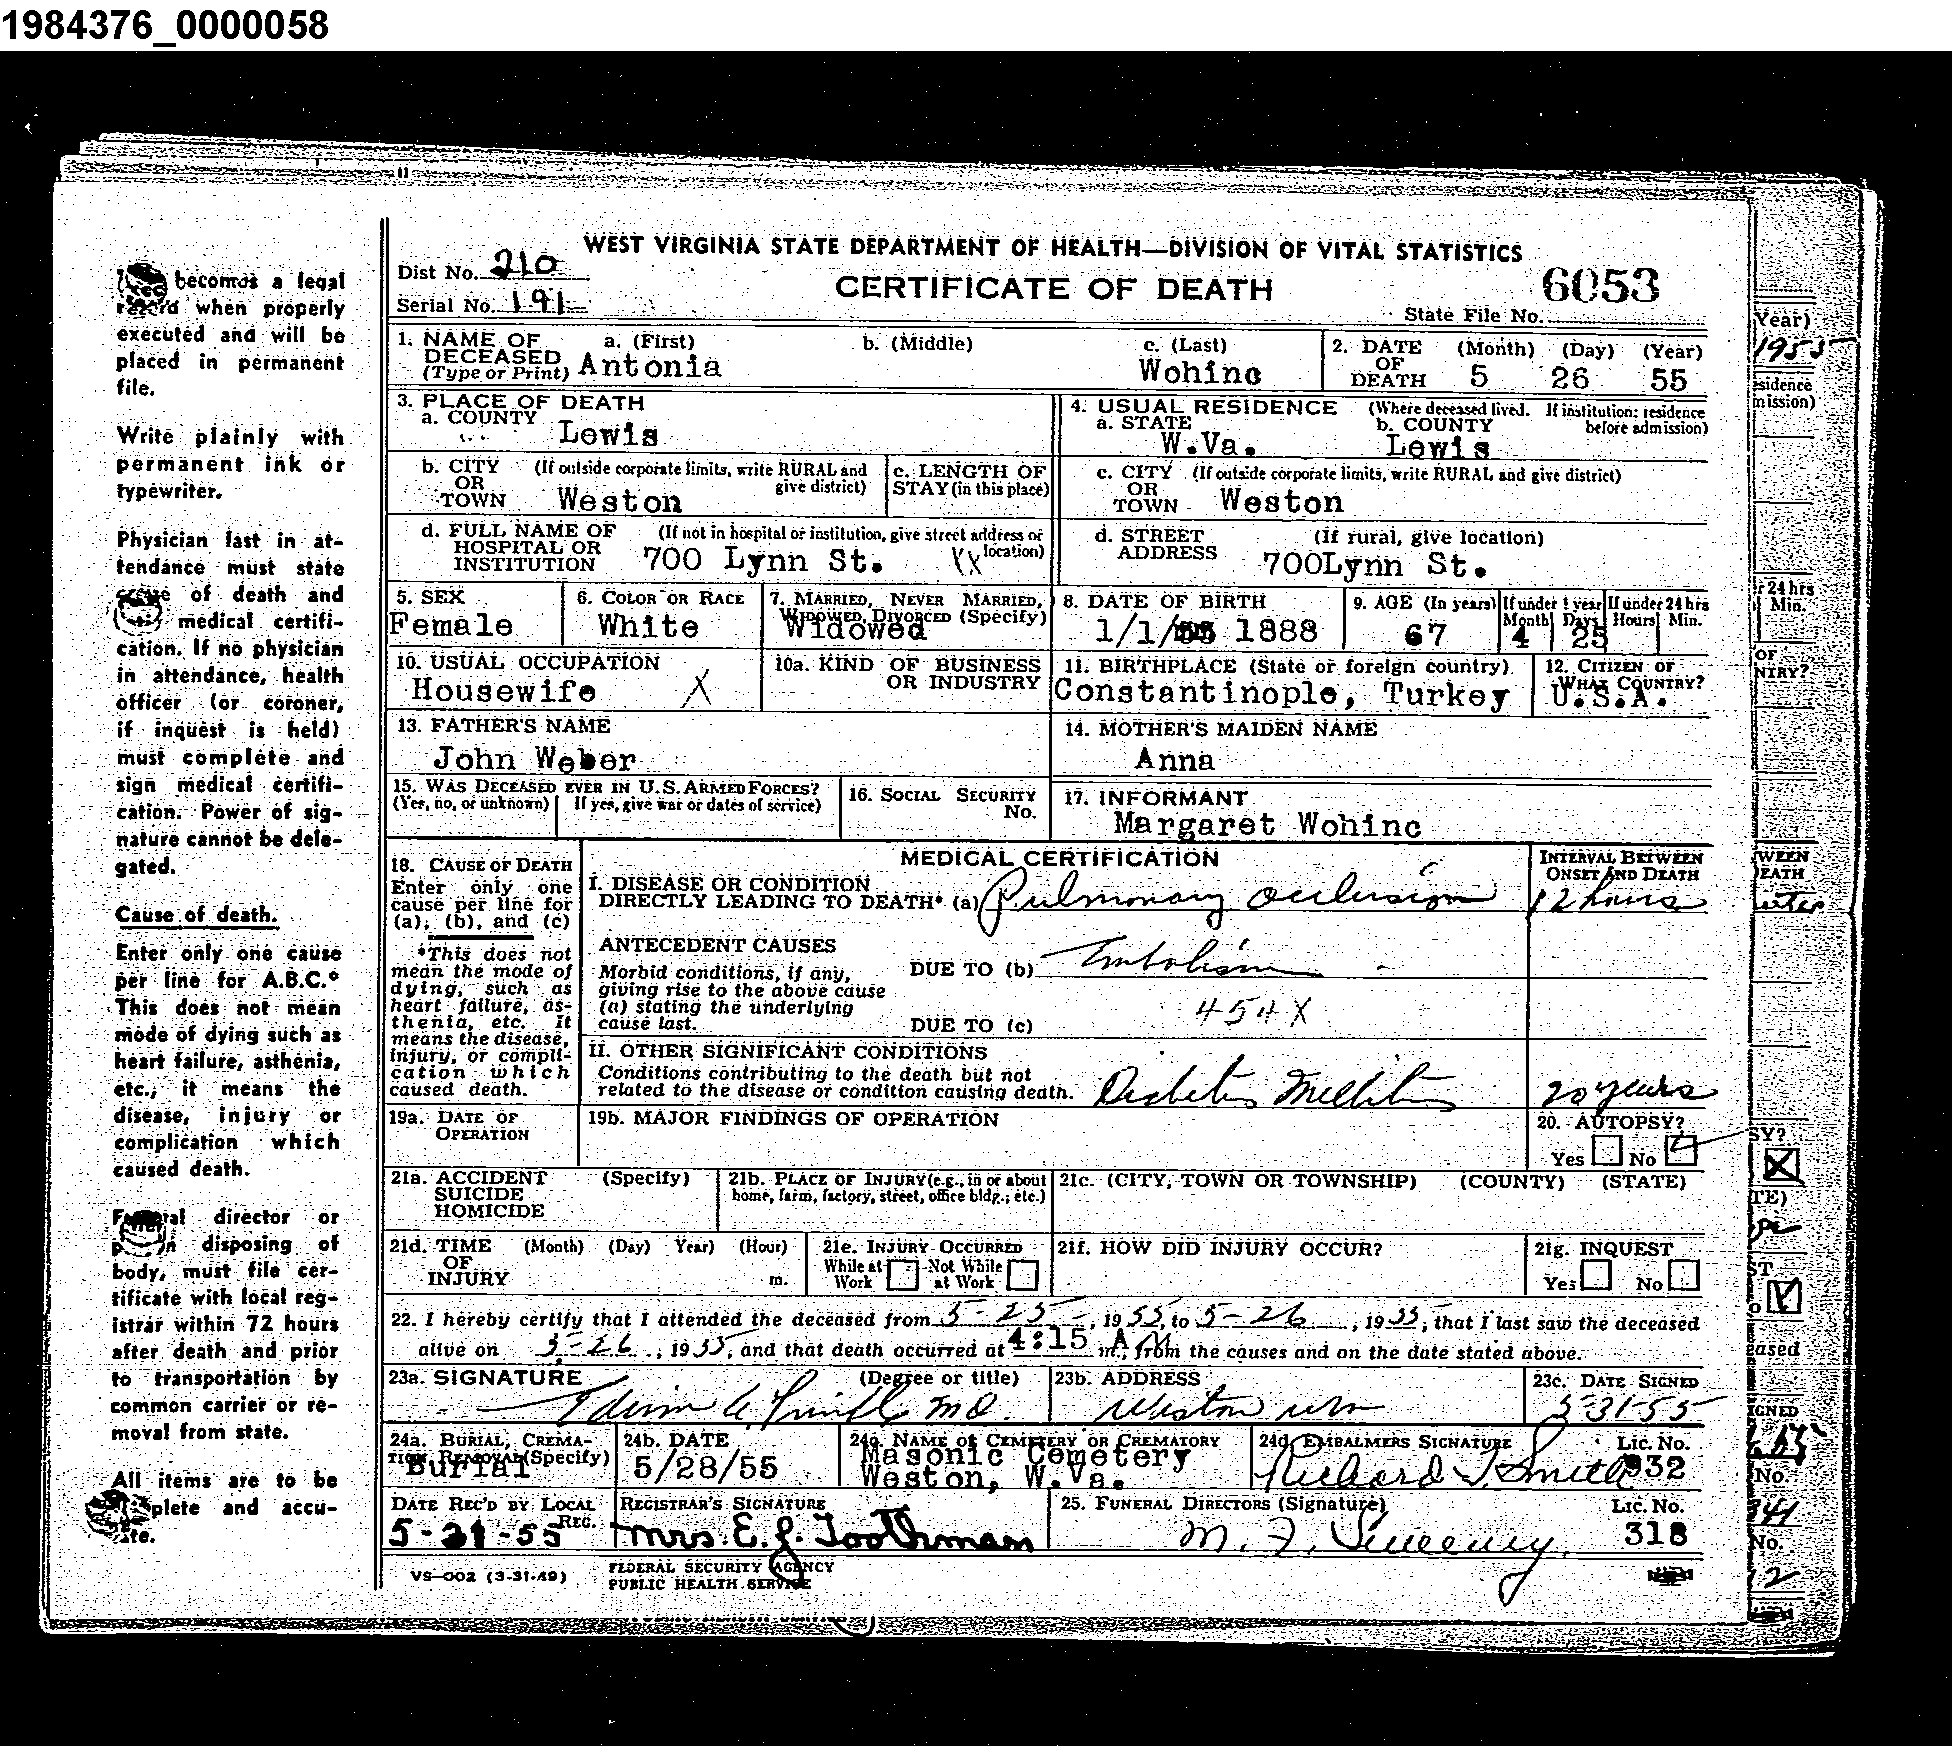 1984376_0000058
WEST VIRGINIA STATE DEPARTMENT OF HEALTH—DIVISION OF VITAL STATISTICS
Dist No. 210
CERTIFICATE OF DEATH
6053
Serial No. 191
State File No.
becomes a legal
record when properly
executed and will be
placed in permanent
file.
Write plainly with
permanent ink or
typewriter.
Physician last in at-
tendance must state
cause of death and
medical certifi-
cation. If no physician
in attendance, health
officer (or coroner,
if inquest is held)
must complete and
sign medical certifi-
cation. Power of sig-
nature cannot be dele-
gated.
Cause of death.
Enter only one cause
per line for A.B.C.*
This does not mean
mode of dying such as
heart failure, asthenia,
etc., it means the
disease, injury or
complication which
caused death.
Funeral director or
disposing of
body, must file cer-
tificate with local reg-
istrar within 72 hours
after death and prior
to transportation by
common carrier or re-
moval from state.
All items are to be
plete and accu-
1. NAME OF DECEASED (Type or Print) a. (First) Antonia b. (Middle) c. (Last) Wohinc
2. DATE OF DEATH (Month) 5 (Day) 26 (Year) 55
3. PLACE OF DEATH
a. COUNTY Lewis
4. USUAL RESIDENCE (Where deceased lived. If institution: residence before admission)
a. STATE W.Va. b. COUNTY Lewis
b. CITY OR TOWN (If outside corporate limits, write RURAL and give district) Weston
c. LENGTH OF STAY (in this place)
c. CITY OR TOWN (If outside corporate limits, write RURAL and give district) Weston
d. FULL NAME OF HOSPITAL OR INSTITUTION (If not in hospital or institution, give street address or location) 700 Lynn St. XX
d. STREET ADDRESS (If rural, give location) 700Lynn St.
5. SEX Female
6. COLOR OR RACE White
7. MARRIED, NEVER MARRIED, WIDOWED, DIVORCED (Specify) Widowed
8. DATE OF BIRTH 1/1/ 1888
9. AGE (In years) 67 If under 1 year Month 4 Days 25 If under 24 hrs Hours Min.
10. USUAL OCCUPATION Housewife X
10a. KIND OF BUSINESS OR INDUSTRY
11. BIRTHPLACE (State or foreign country) Constantinople, Turkey
12. CITIZEN OF WHAT COUNTRY? U.S.A.
13. FATHER'S NAME John Weber
14. MOTHER'S MAIDEN NAME Anna
15. WAS DECEASED EVER IN U.S. ARMED FORCES? (Yes, no, or unknown) If yes, give war or dates of service)
16. SOCIAL SECURITY No.
17. INFORMANT Margaret Wohinc
18. CAUSE OF DEATH
Enter only one
cause per line for
(a), (b), and (c)
*This does not
mean the mode of
dying, such as
heart failure, as-
thenia, etc. It
means the disease,
injury, or compli-
cation which
caused death.
MEDICAL CERTIFICATION
INTERVAL BETWEEN ONSET AND DEATH
I. DISEASE OR CONDITION
DIRECTLY LEADING TO DEATH* (a) Pulmonary occlusion 12 hours
ANTECEDENT CAUSES
Morbid conditions, if any,
giving rise to the above cause
(a) stating the underlying
cause last.
DUE TO (b) Embolism
454X
DUE TO (c)
II. OTHER SIGNIFICANT CONDITIONS
Conditions contributing to the death but not
related to the disease or condition causing death. Diabetes Mellitus 20 years
19a. DATE OF OPERATION
19b. MAJOR FINDINGS OF OPERATION
20. AUTOPSY?
Yes No
21a. ACCIDENT SUICIDE HOMICIDE (Specify)
21b. PLACE OF INJURY (e.g., in or about home, farm, factory, street, office bldg., etc.)
21c. (CITY, TOWN OR TOWNSHIP) (COUNTY) (STATE)
21d. TIME OF INJURY (Month) (Day) Year) (Hour) m.
21e. INJURY OCCURRED While at Work Not While at Work
21f. HOW DID INJURY OCCUR?
21g. INQUEST Yes No
22. I hereby certify that I attended the deceased from 5-25, 1955, to 5-26, 1955, that I last saw the deceased
alive on 5-26, 1955, and that death occurred at 4:15 A m., from the causes and on the date stated above.
23a. SIGNATURE (Degree or title) MD.
23b. ADDRESS Weston
23c. DATE SIGNED 5-31-55
24a. BURIAL, CREMATION, REMOVAL (Specify) Burial
24b. DATE 5/28/55
24c. NAME OF CEMETERY OR CREMATORY Masonic Cemetery
Weston, W.Va.
24d. EMBALMERS SIGNATURE Richard T. Smith LIC. No. 932
DATE REC'D BY LOCAL REG. 5-31-55
REGISTRAR'S SIGNATURE Mrs. E. J. Toothman
25. FUNERAL DIRECTORS (Signature) M. F. Sweeney LIC. No. 318
VS-002 (3-31-49)
FEDERAL SECURITY AGENCY
PUBLIC HEALTH SERVICE